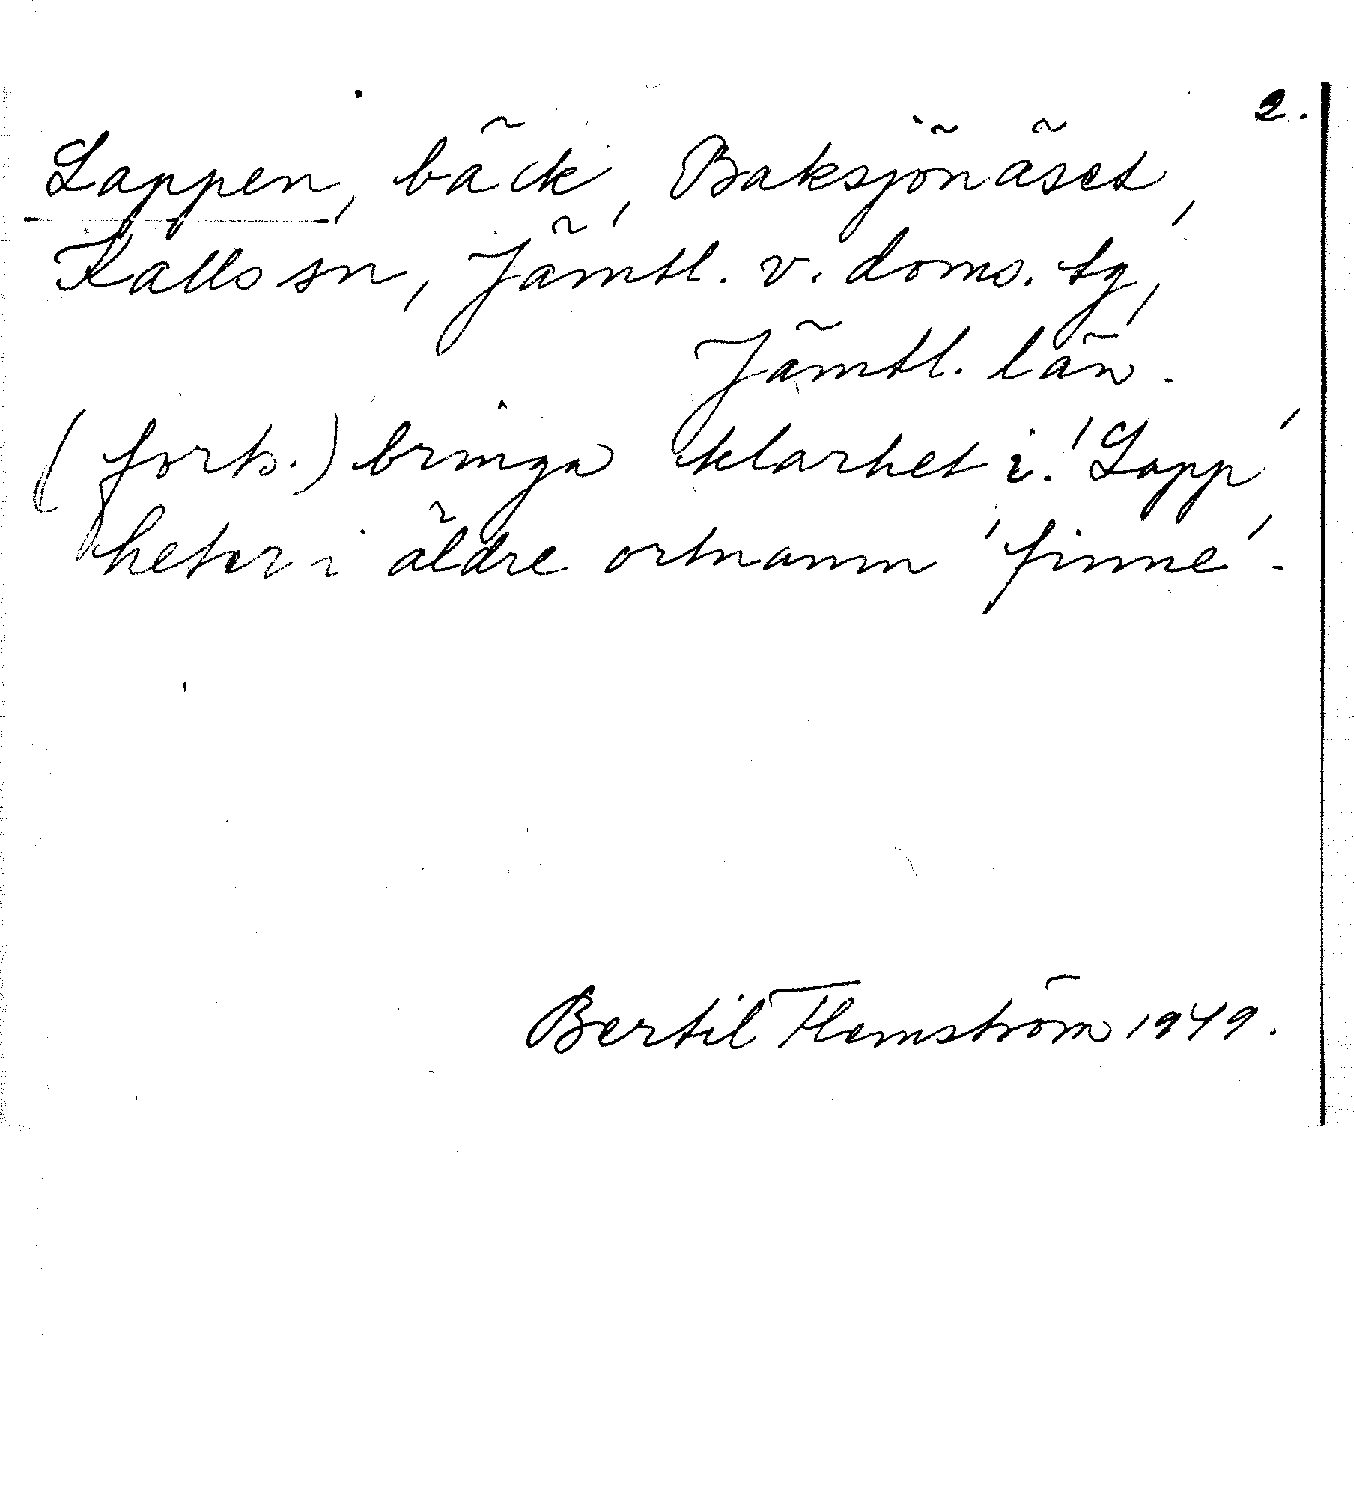 2.
Lappen, bäck, Baksjönäset,
Kalls sn, Jämtl. v. doms. tg,
Jämtl. län.
(forts.) bringa klarhet i. 'Lapp'
heter i äldre ortnamn 'finne'.
Bertil Flemström 1949.